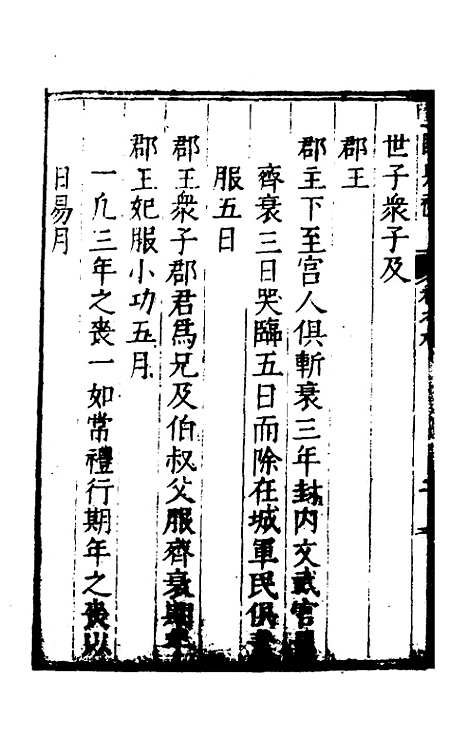 世子衆子及
郡王
郡主下至宫人俱斬衰三年封内文武官
齊衰三日哭臨五日而除在城軍民俱素
服五日
郡王衆子郡君為兄及伯叔父服齊衰期年
郡王妃服小功五月
一凡三年之喪一如常禮行期年之喪以
日易月